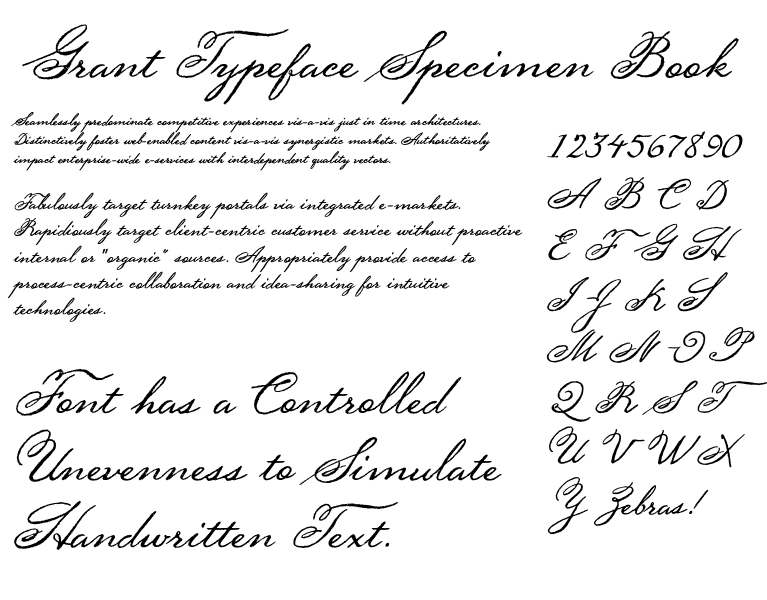 Grant Typeface Specimen Book
Seamlessly predominate competitive experiences vis-a-vis just in time architectures.
Distinctively foster web-enabled content vis-a-vis synergistic markets. Authoritatively
impact enterprise-wide e-services with interdependent quality vectors.
Fabulously target turnkey portals via integrated e-markets.
Rapidiously target client-centric customer service without proactive
internal or "organic" sources. Appropriately provide access to
process-centric collaboration and idea-sharing for intuitive
technologies.
Font has a Controlled
Unevenness to Simulate
Handwritten Text.
1234567890
A B C D
E F G H
I J K L
M N O P
Q R S T
U V W X
Y Zebras!